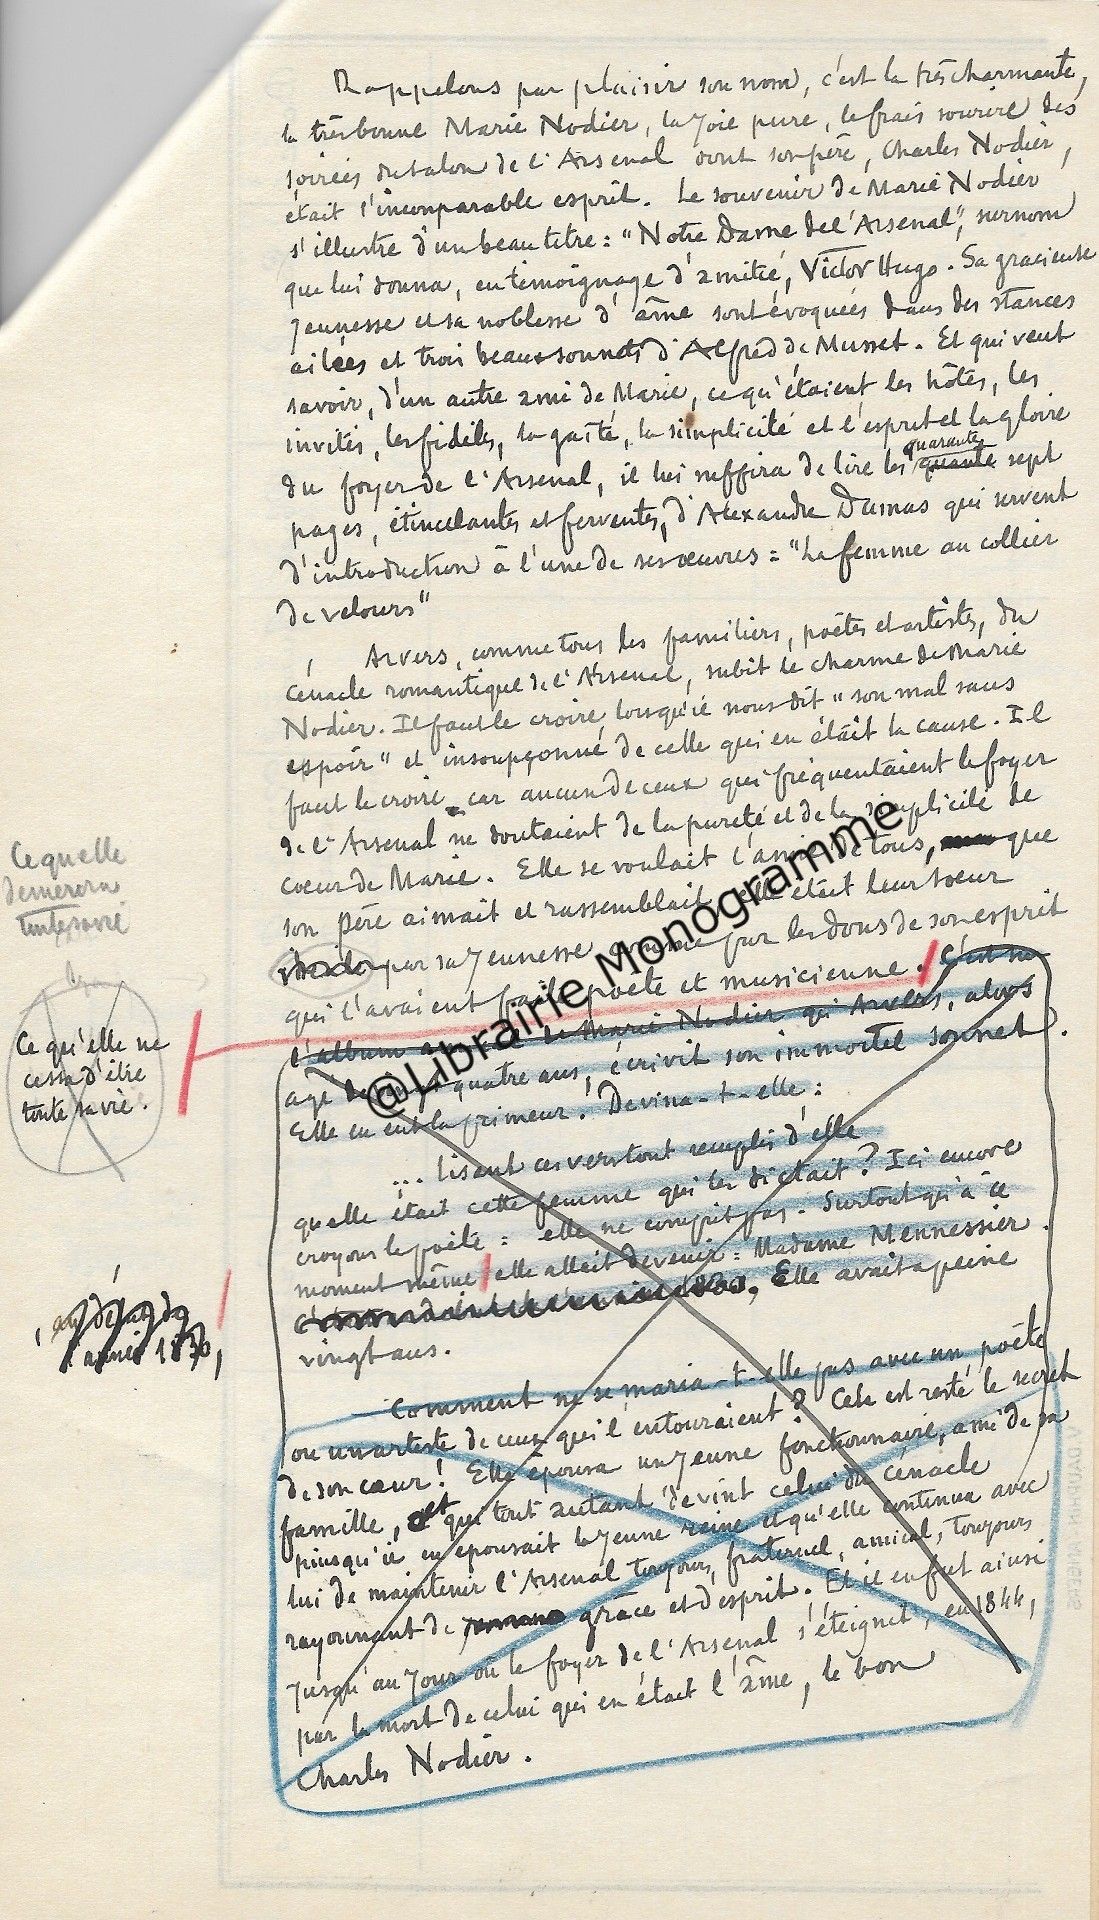 Rappelons par plaisir son nom, c'est la très charmante,
la très bonne Marie Nodier, la joie pure, le frais sourire des
soirées du salon de l'Arsenal dont son père, Charles Nodier,
était l'incomparable esprit. Le souvenir de Marie Nodier
s'illustre d'un beau titre : "Notre Dame de l'Arsenal", surnom
que lui donna, en témoignage d'amitié, Victor Hugo. Sa gracieuse
jeunesse et sa noblesse d'âme sont évoquées dans des stances
ailées et trois beaux sonnets d'Alfred de Musset. Et qui veut
savoir, d'un autre ami de Marie, ce qu'étaient les hôtes, les
invités, les fidèles, la gaîté, la simplicité et l'esprit et la gloire
quarante
du foyer de l'Arsenal, il lui suffira de lire les sept
pages, étincelantes et ferventes, d'Alexandre Dumas qui servent
d'introduction à l'une de ses œuvres = "La femme au collier
de velours"
Arvers, comme tous les familiers, poètes et artistes, du
Cénacle romantique de l'Arsenal, subit le charme de Marie
Nodier. Il faut le croire, lorsqu'il nous dit "son mal sans
espoir" et insoupçonné de celle qui en était la cause. Il
faut le croire car aucun de ceux qui fréquentaient le foyer
de l'Arsenal ne doutaient de la pureté et de la simplicité de
Ce qu'elle
demeurera
toute sa vie
cœur de Marie. Elle se voulait l'amie de tous, que
son père aimait et rassemblait elle était leur sœur
par sa jeunesse comme par les dons de son esprit
qui l'avaient fait poète et musicienne. C'est sur
Ce qu'elle ne
cessa d'être
toute sa vie.
l'album de Marie Nodier qu'Arvers, alors
âgé de vingt quatre ans, écrivit son immortel sonnet.
Elle en eut la primeur. Devina-t-elle :
... lisant ces vers tout remplis d'elle
quelle était cette femme qui les dictait ? Ici encore
croyons le poète = elle ne comprit pas. Surtout qu'à ce
moment même elle allait devenir = Madame Mennessier.
l'année 1830,
Elle avait à peine
vingt ans.
Comment ne se maria-t-elle pas avec un poète
ou un artiste de ceux qui l'entouraient ? Cela est resté le secret
de son cœur ! Elle épousa un jeune fonctionnaire, ami de sa
famille, et qui tout autant devint celui du cénacle
puisqu'il en épousait la jeune reine et qu'elle continua avec
lui de maintenir l'Arsenal toujours fraternel, amical, toujours
rayonnant de grâce et d'esprit. Et il en fut ainsi
jusqu'au jour où le foyer de l'Arsenal s'éteignit, en 1844,
par la mort de celui qui en était l'âme, le bon
Charles Nodier.
@Librairie Monogramme